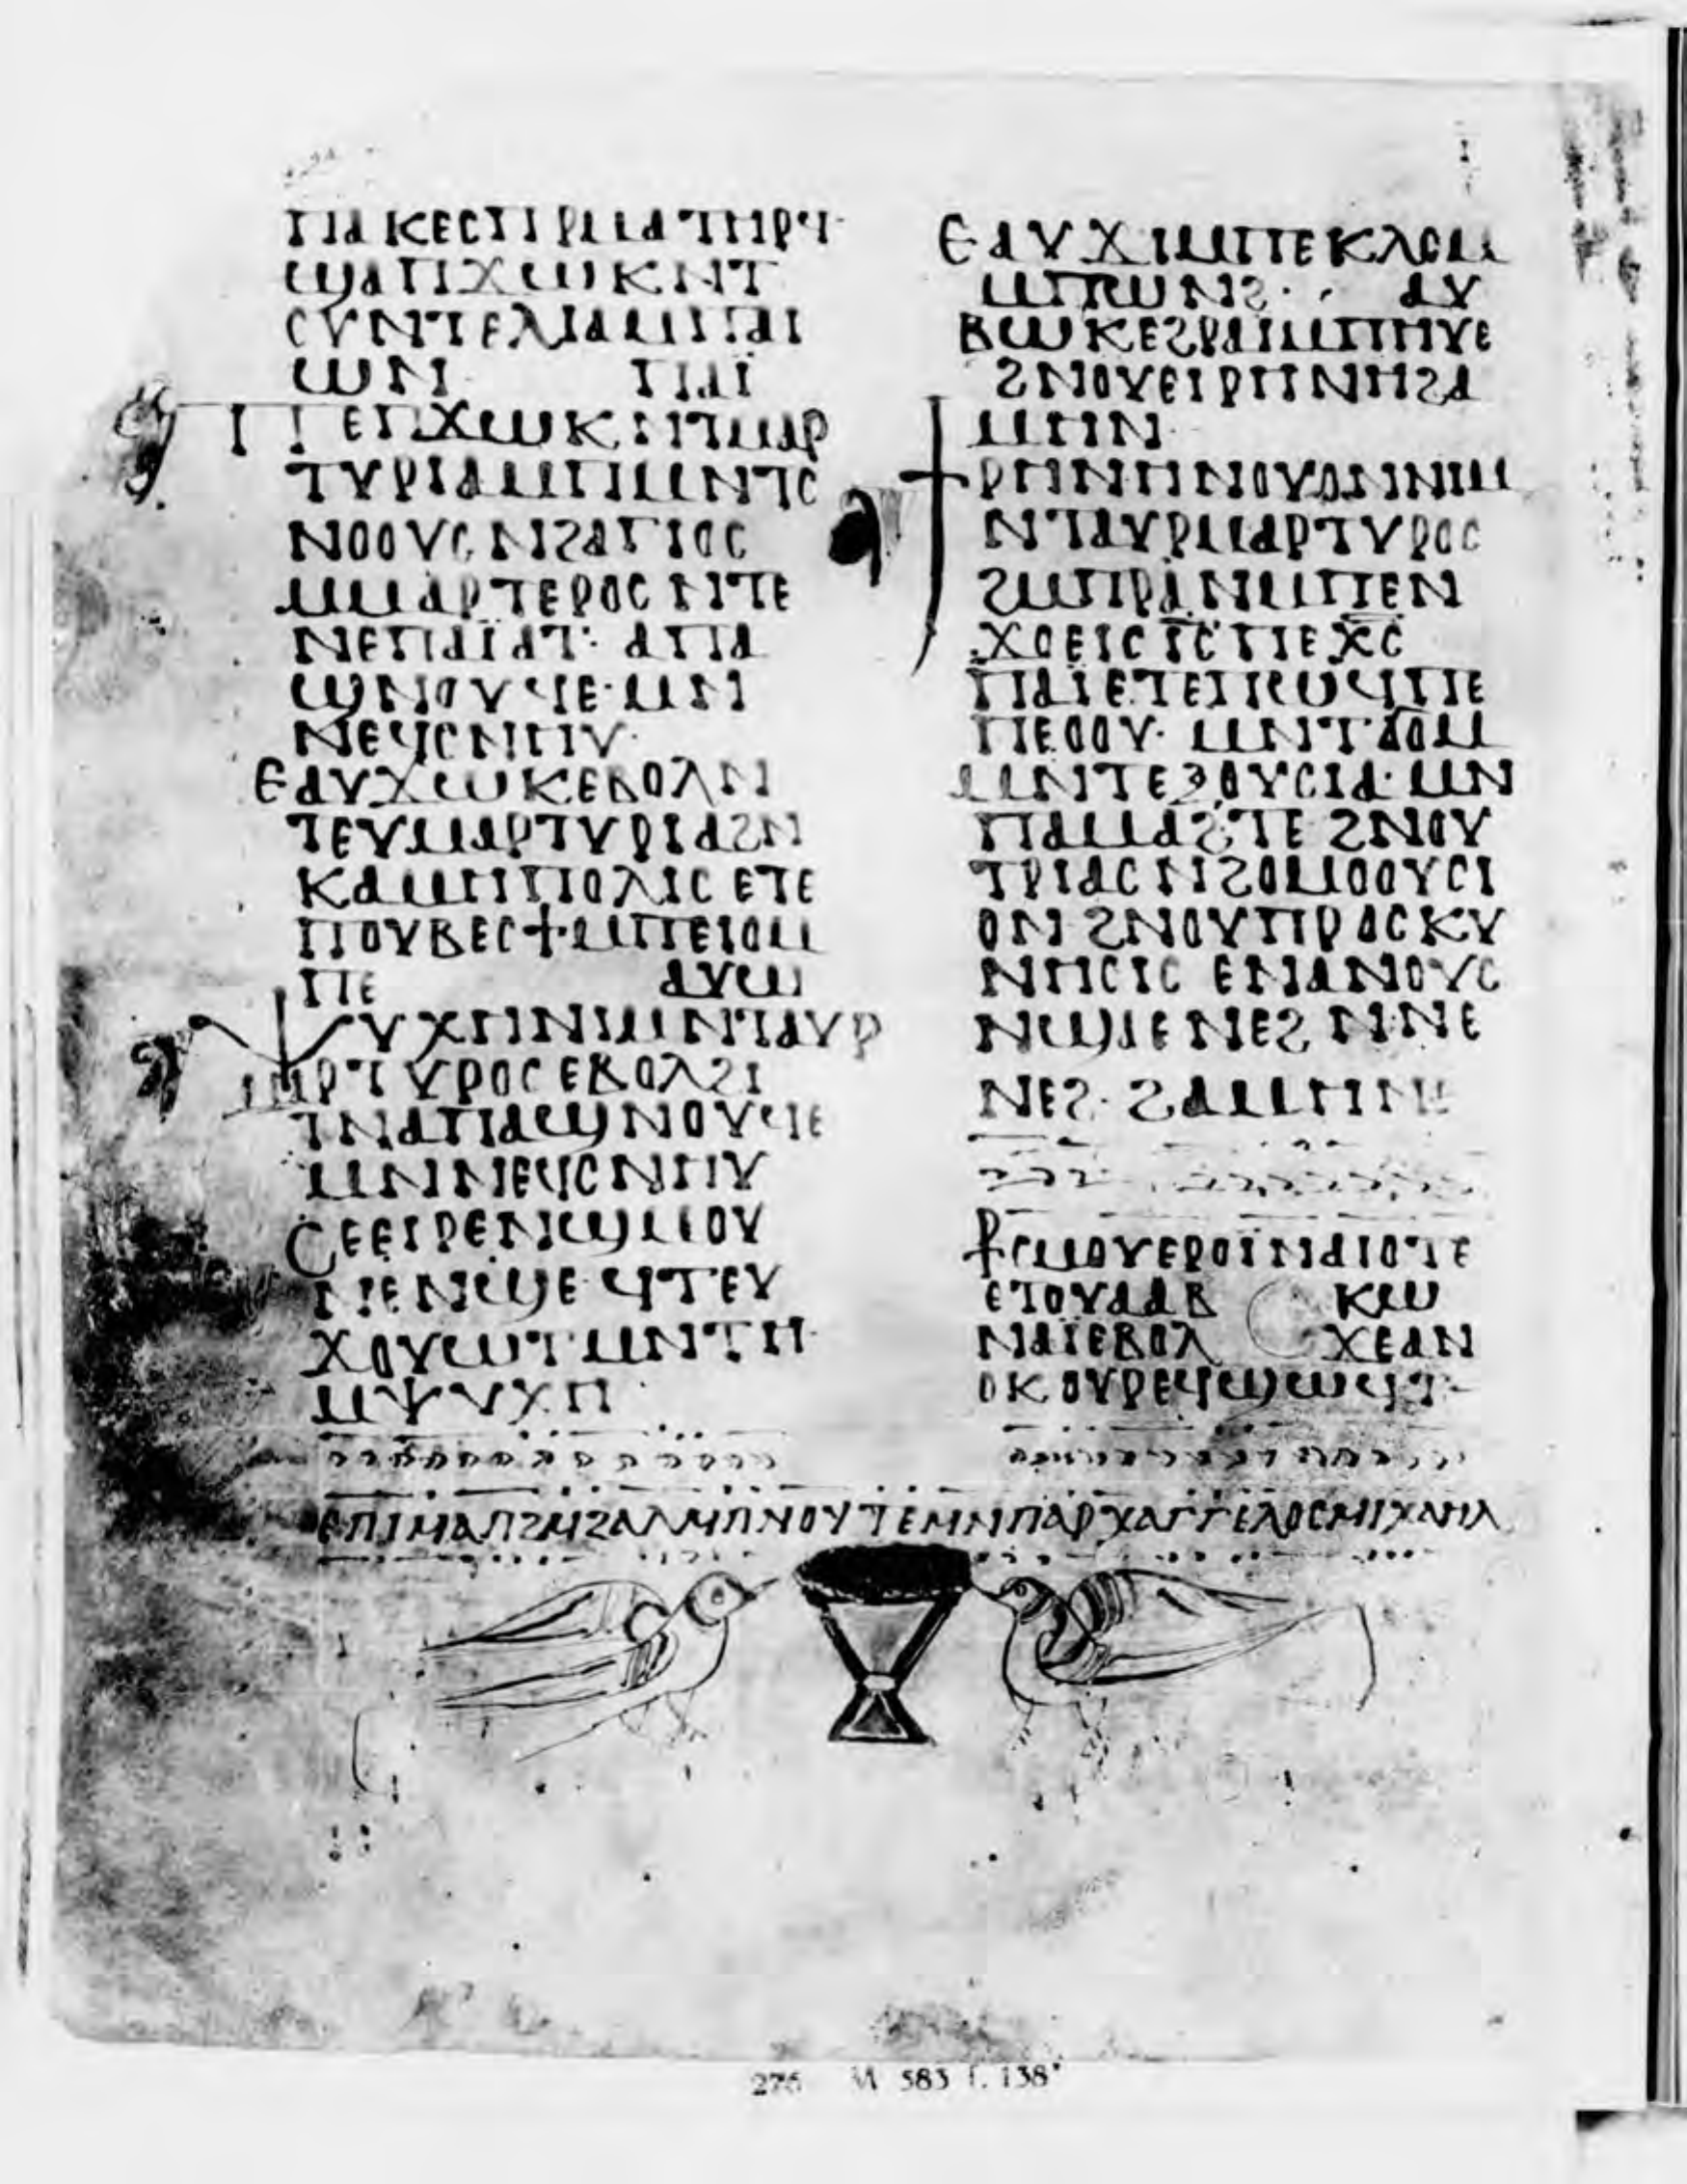 ⲡⲁⲕⲉⲥⲡⲉⲣⲙⲁ ⲧⲏⲣϥ·
ϣⲁⲡϫⲱⲕ ⲛⲧ
ⲥⲩⲛⲧⲉⲗⲓⲁ ⲙⲡⲁⲓ
ⲱⲛ ⲡⲁⲓ̈
ⲡⲉ ⲡϫⲱⲕ ⲛⲧⲙⲁⲣ
ⲧⲩⲣⲓⲁ ⲙⲡⲙⲛⲧⲥ
ⲛⲟⲟⲩⲥ ⲛϩⲁⲅⲓⲟⲥ
ⲙⲙⲁⲣⲧⲉⲣⲟⲥ ⲛⲧⲉ
ⲛⲉⲡⲁⲓ̈ⲁⲧ· ⲁⲡⲁ
ϣⲛⲟⲩϥⲉ· ⲙⲛ
ⲛⲉϥⲥⲛⲏⲩ·
ⲉⲁⲩϫⲱⲕ ⲉⲃⲟⲗ ⲛ
ⲧⲉⲩⲙⲁⲣⲧⲩⲣⲓⲁ ϩⲛ
ⲕⲁⲙⲏⲡⲟⲗⲓⲥ ⲉⲧⲉ
ⲡⲟⲩⲃⲉⲥϯ· ⲙⲡⲉⲓⲟⲙ
ⲡⲉ ⲁⲩⲱ
ⲯⲩⲭⲏ ⲛⲓⲙ ⲛⲧⲁⲩⲣ
ⲙⲣⲧⲩⲣⲟⲥ ⲉⲃⲟⲗ ϩⲓ
ⲧⲛ ⲁⲡⲁ ϣⲛⲟⲩϥⲉ
ⲙⲛ ⲛⲉϥⲥⲛⲏⲩ
ⲥⲉⲉⲓⲣⲉ ⲛϣⲙⲟⲩ
ⲛⲉ ⲛϣⲉ· ϥⲧⲉⲩ
ϫⲟⲩⲱⲧ ⲙⲛⲧⲏ·
ⲙⲯⲩⲭⲏ
ⲉⲁⲩϫⲓ ⲙⲡⲉⲕⲗⲟⲙ
ⲙⲡⲱⲛϩ· ⲁⲩ
ⲃⲱⲕ ⲉϩⲣⲁⲓ ⲙⲡⲏⲩⲉ
ϩⲛ ⲟⲩⲉⲓⲣⲏⲛⲏ ϩⲁ
ⲙⲏⲛ·
ϯⲣⲏⲛⲏ ⲛⲟⲩⲟⲛ ⲛⲓⲙ
ⲛⲧⲁⲩⲣⲙⲁⲣⲧⲩⲣⲟⲥ
ϩⲙ ⲡⲣⲁⲛ ⲙⲡⲉⲛ
ϫⲟⲉⲓⲥ ⲓ̅ⲥ̅ ⲡⲉⲭ̅ⲥ̅
ⲡⲁⲓ̈ ⲉⲧⲉ ⲡⲱϥ ⲡⲉ
ⲡⲉⲟⲟⲩ· ⲙⲛ ⲧϭⲟⲙ
ⲙⲛ ⲧⲉⲝⲟⲩⲥⲓⲁ· ⲙⲛ
ⲡⲁⲙⲁϩⲧⲉ ϩⲛ ⲟⲩ
ⲧⲣⲓⲁⲥ ⲛϩⲟⲙⲟⲟⲩⲥⲓ
ⲟⲛ ϩⲛ ⲟⲩⲡⲣⲟⲥⲕⲩ
ⲛⲏⲥⲓⲥ ⲉⲛⲁⲛⲟⲩⲥ
ⲛϣⲁⲉⲛⲉϩ ⲛⲛⲉ
ⲛⲉϩ· ϩⲁⲙⲏⲛ
ⲥⲙⲟⲩ ⲉⲣⲟⲓ̈ ⲛⲁⲓⲟⲧⲉ
ⲉⲧⲟⲩⲁⲁⲃ ⲕⲱ
ⲛⲁⲓ̈ ⲉⲃⲟⲗ ϫⲉ ⲁⲛ
ⲟⲕ ⲟⲩⲣⲉϥϣⲱϥⲧ
ⲉⲡⲓⲙⲁ ⲡϩⲙϩⲁⲗ ⲙⲡⲛⲟⲩⲧⲉ ⲙⲛ ⲡⲁⲣⲭⲁⲅⲅⲉⲗⲟⲥ ⲙⲓⲭⲁⲏⲗ
276 M 583 f. 138ᵛ